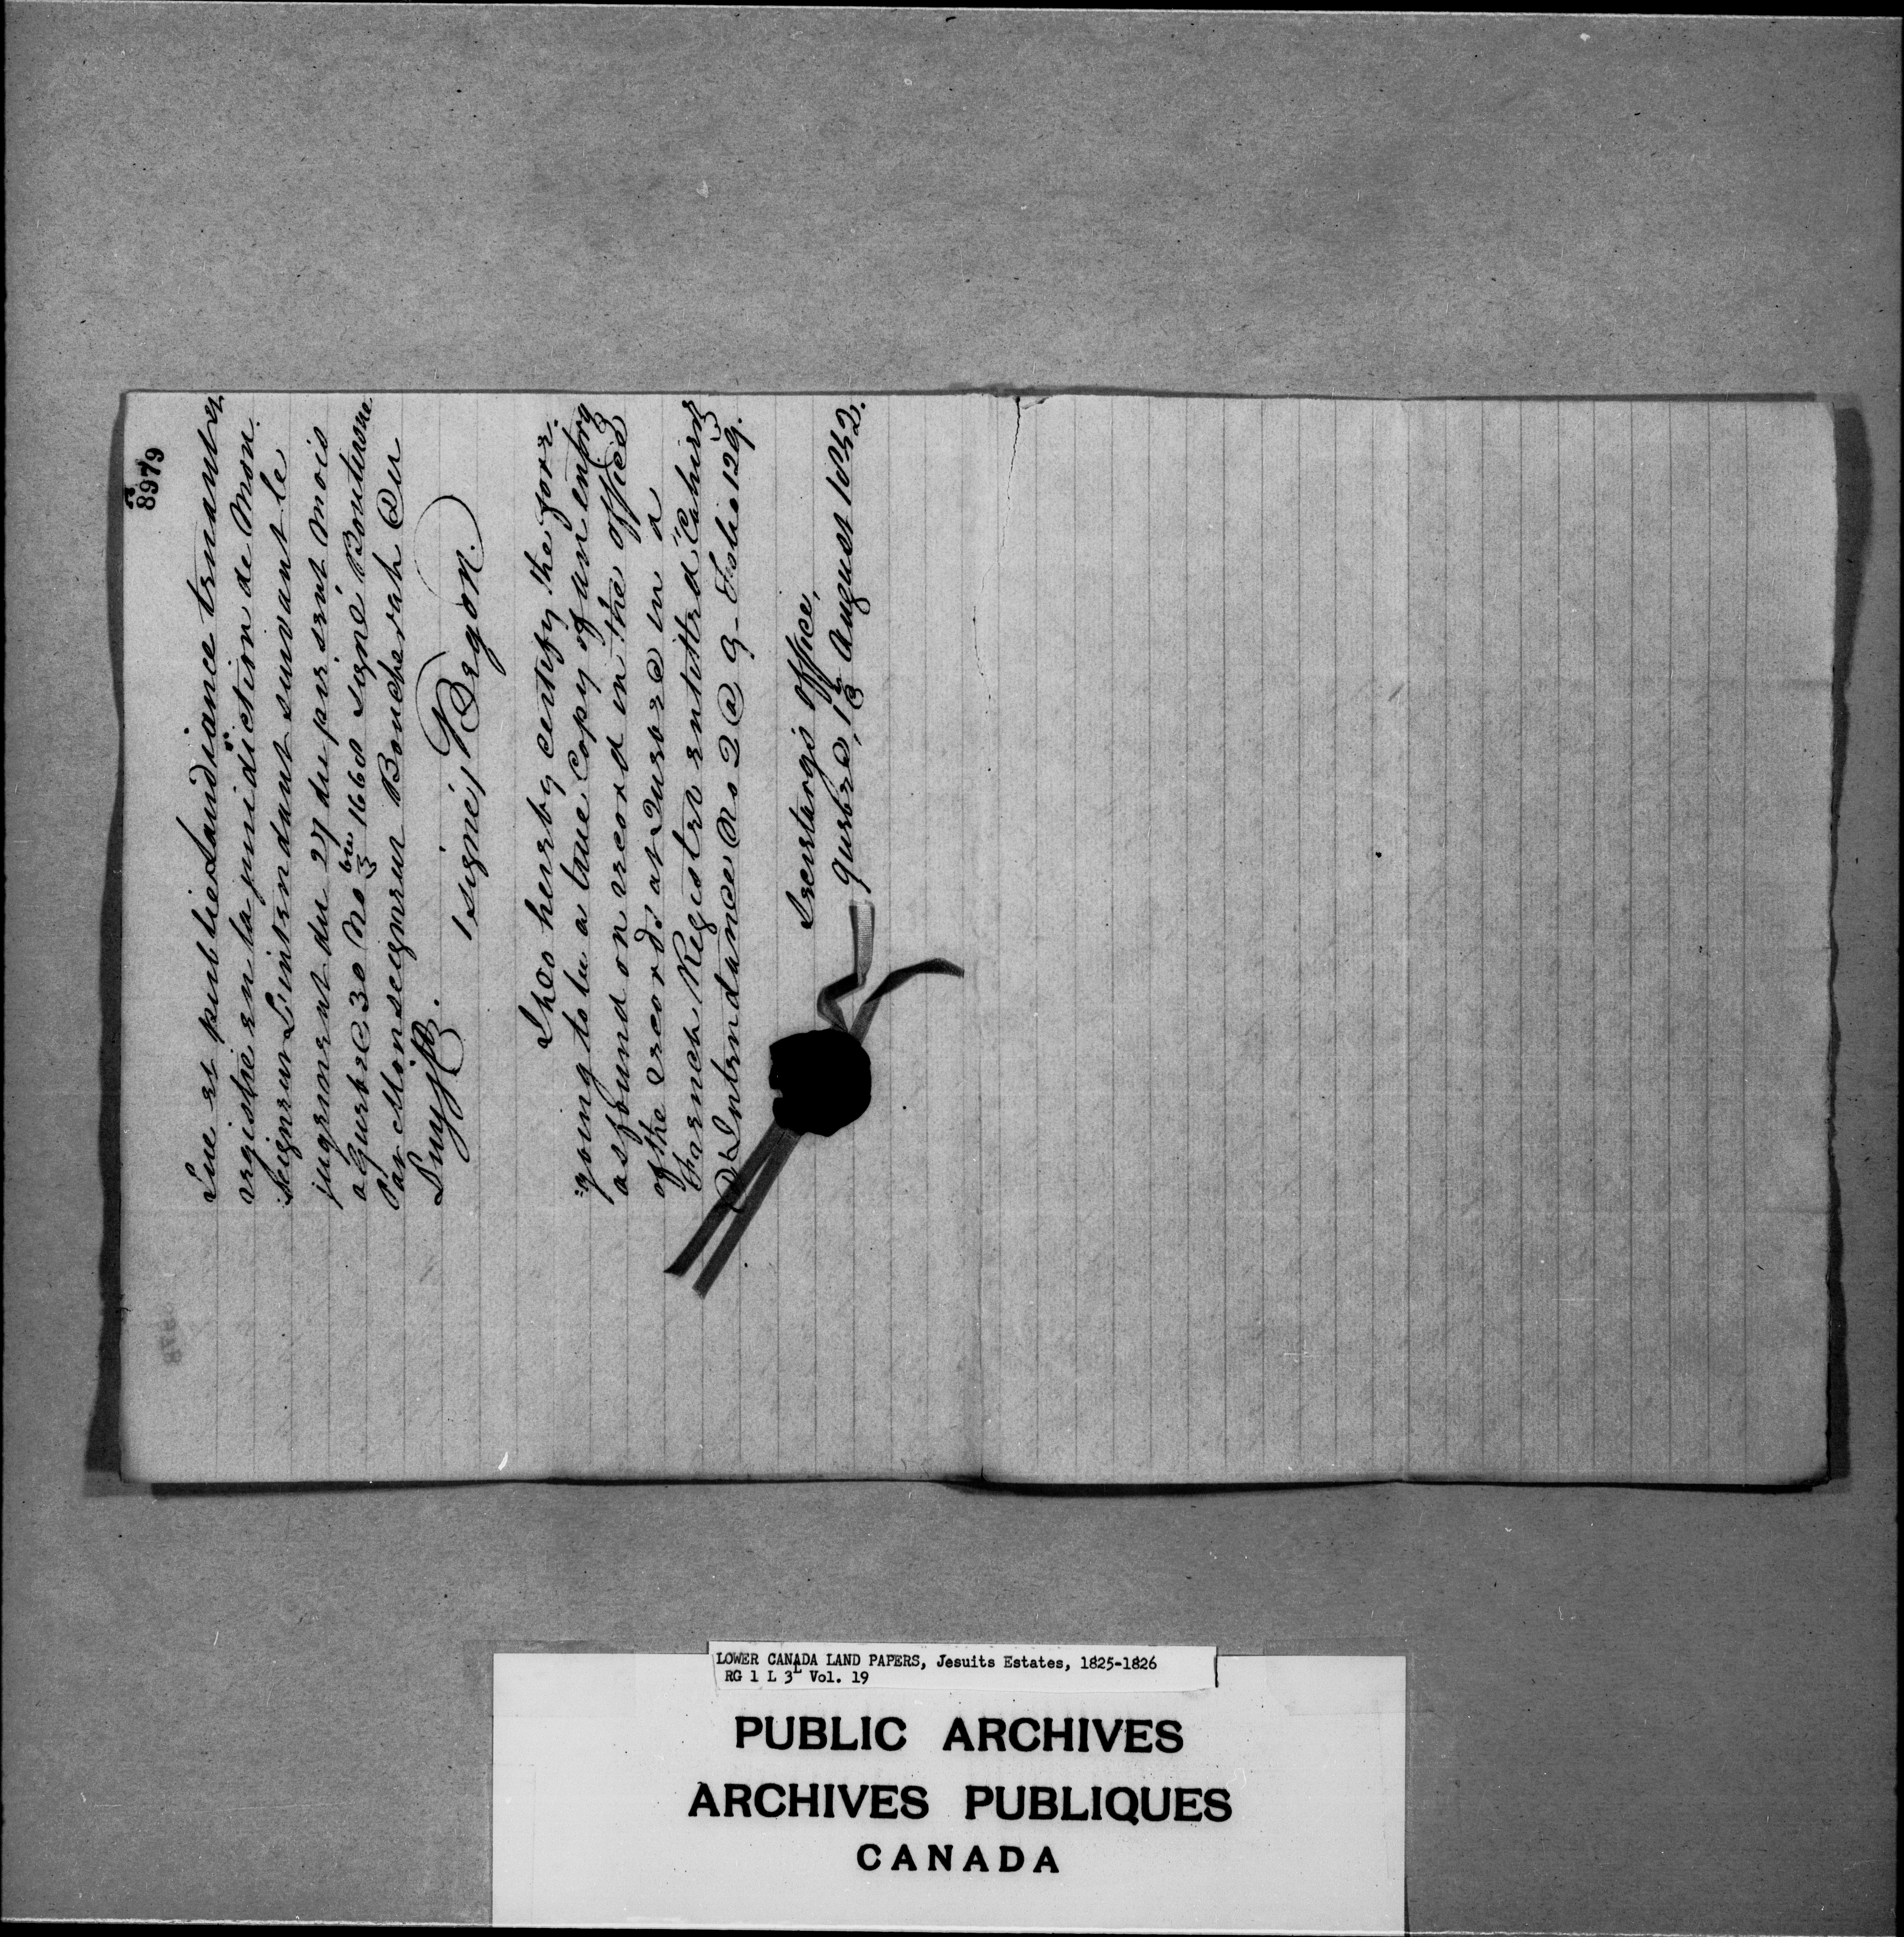 8979
Lue et publiee Laudiance tenante et
registrie en la juridiction de Mon.
seigneur L'intendant suivant le
jugement du 27 du present mois
a Quebec 30 No bre 1660 signé Boutirone
Par Monseigneur Boucherah Du
Duyft.
/signé/ Begon.
I do hereby certify the fore-
=going to be a true Copy of an entry
as found on record in the office
of the records at Quebec in a
French Register entitted "Cahiers
D'Intendance No 2 @ 9 - Folio 129.
Secretary's Office,
Quebec, 13 August 1842.
LOWER CANADA LAND PAPERS, Jesuits Estates, 1825-1826
RG 1 L 3L Vol. 19
PUBLIC ARCHIVES
ARCHIVES PUBLIQUES
CANADA